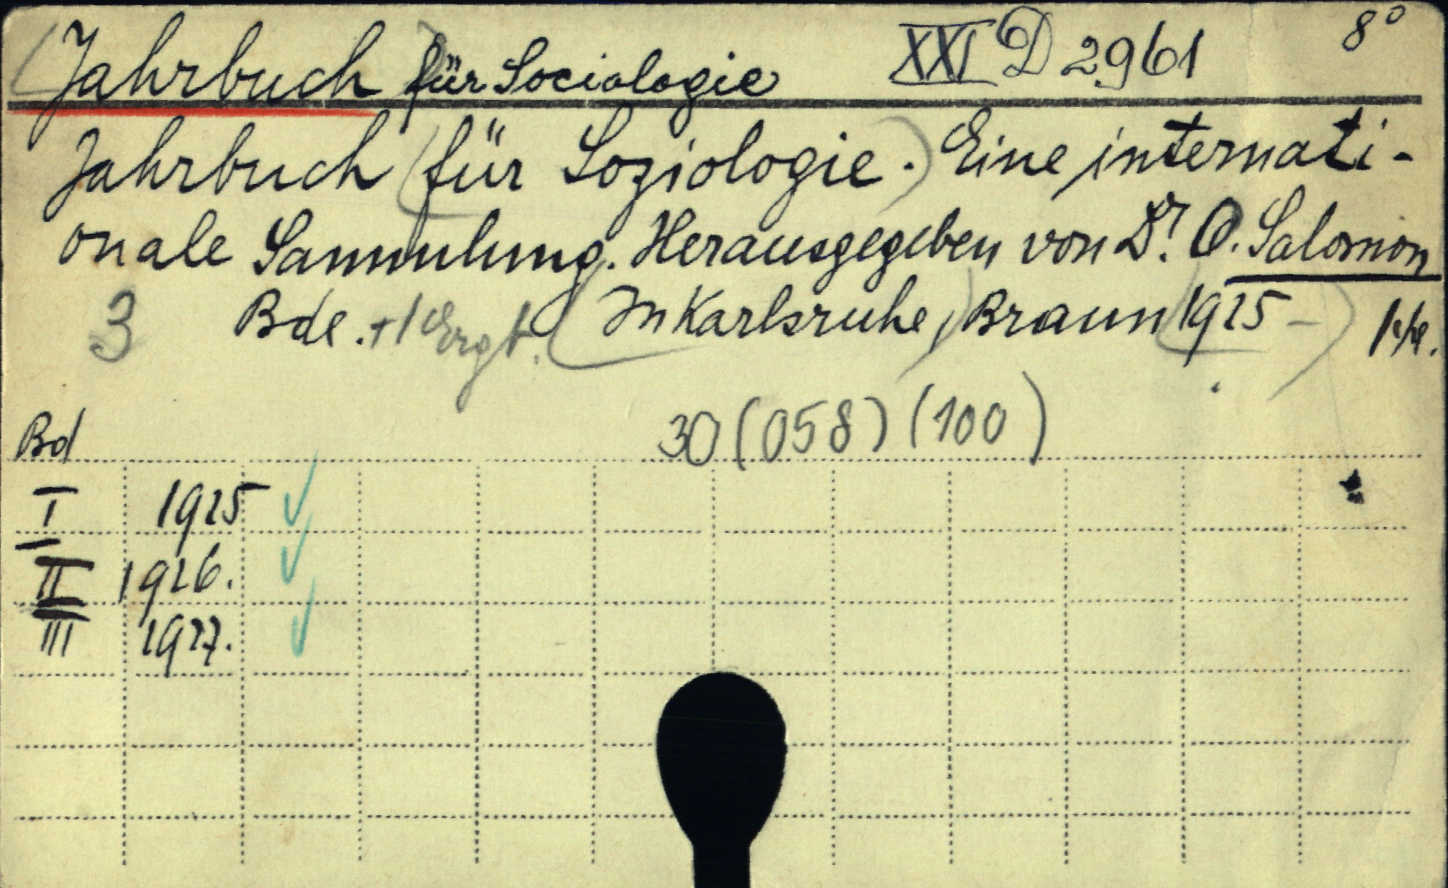 Jahrbuch für Sociologie XXI D 2961 8°
Jahrbuch (für Soziologie.) Eine internati-
onale Sammlung. Herausgegeben von Dr. G. Salomon
3 Bde. + 1 Ergb. (In Karlsruhe, Braun 1925 - )
30 (058) (100)
Bd
I 1925 ✓
II 1926. ✓
III 1927. ✓